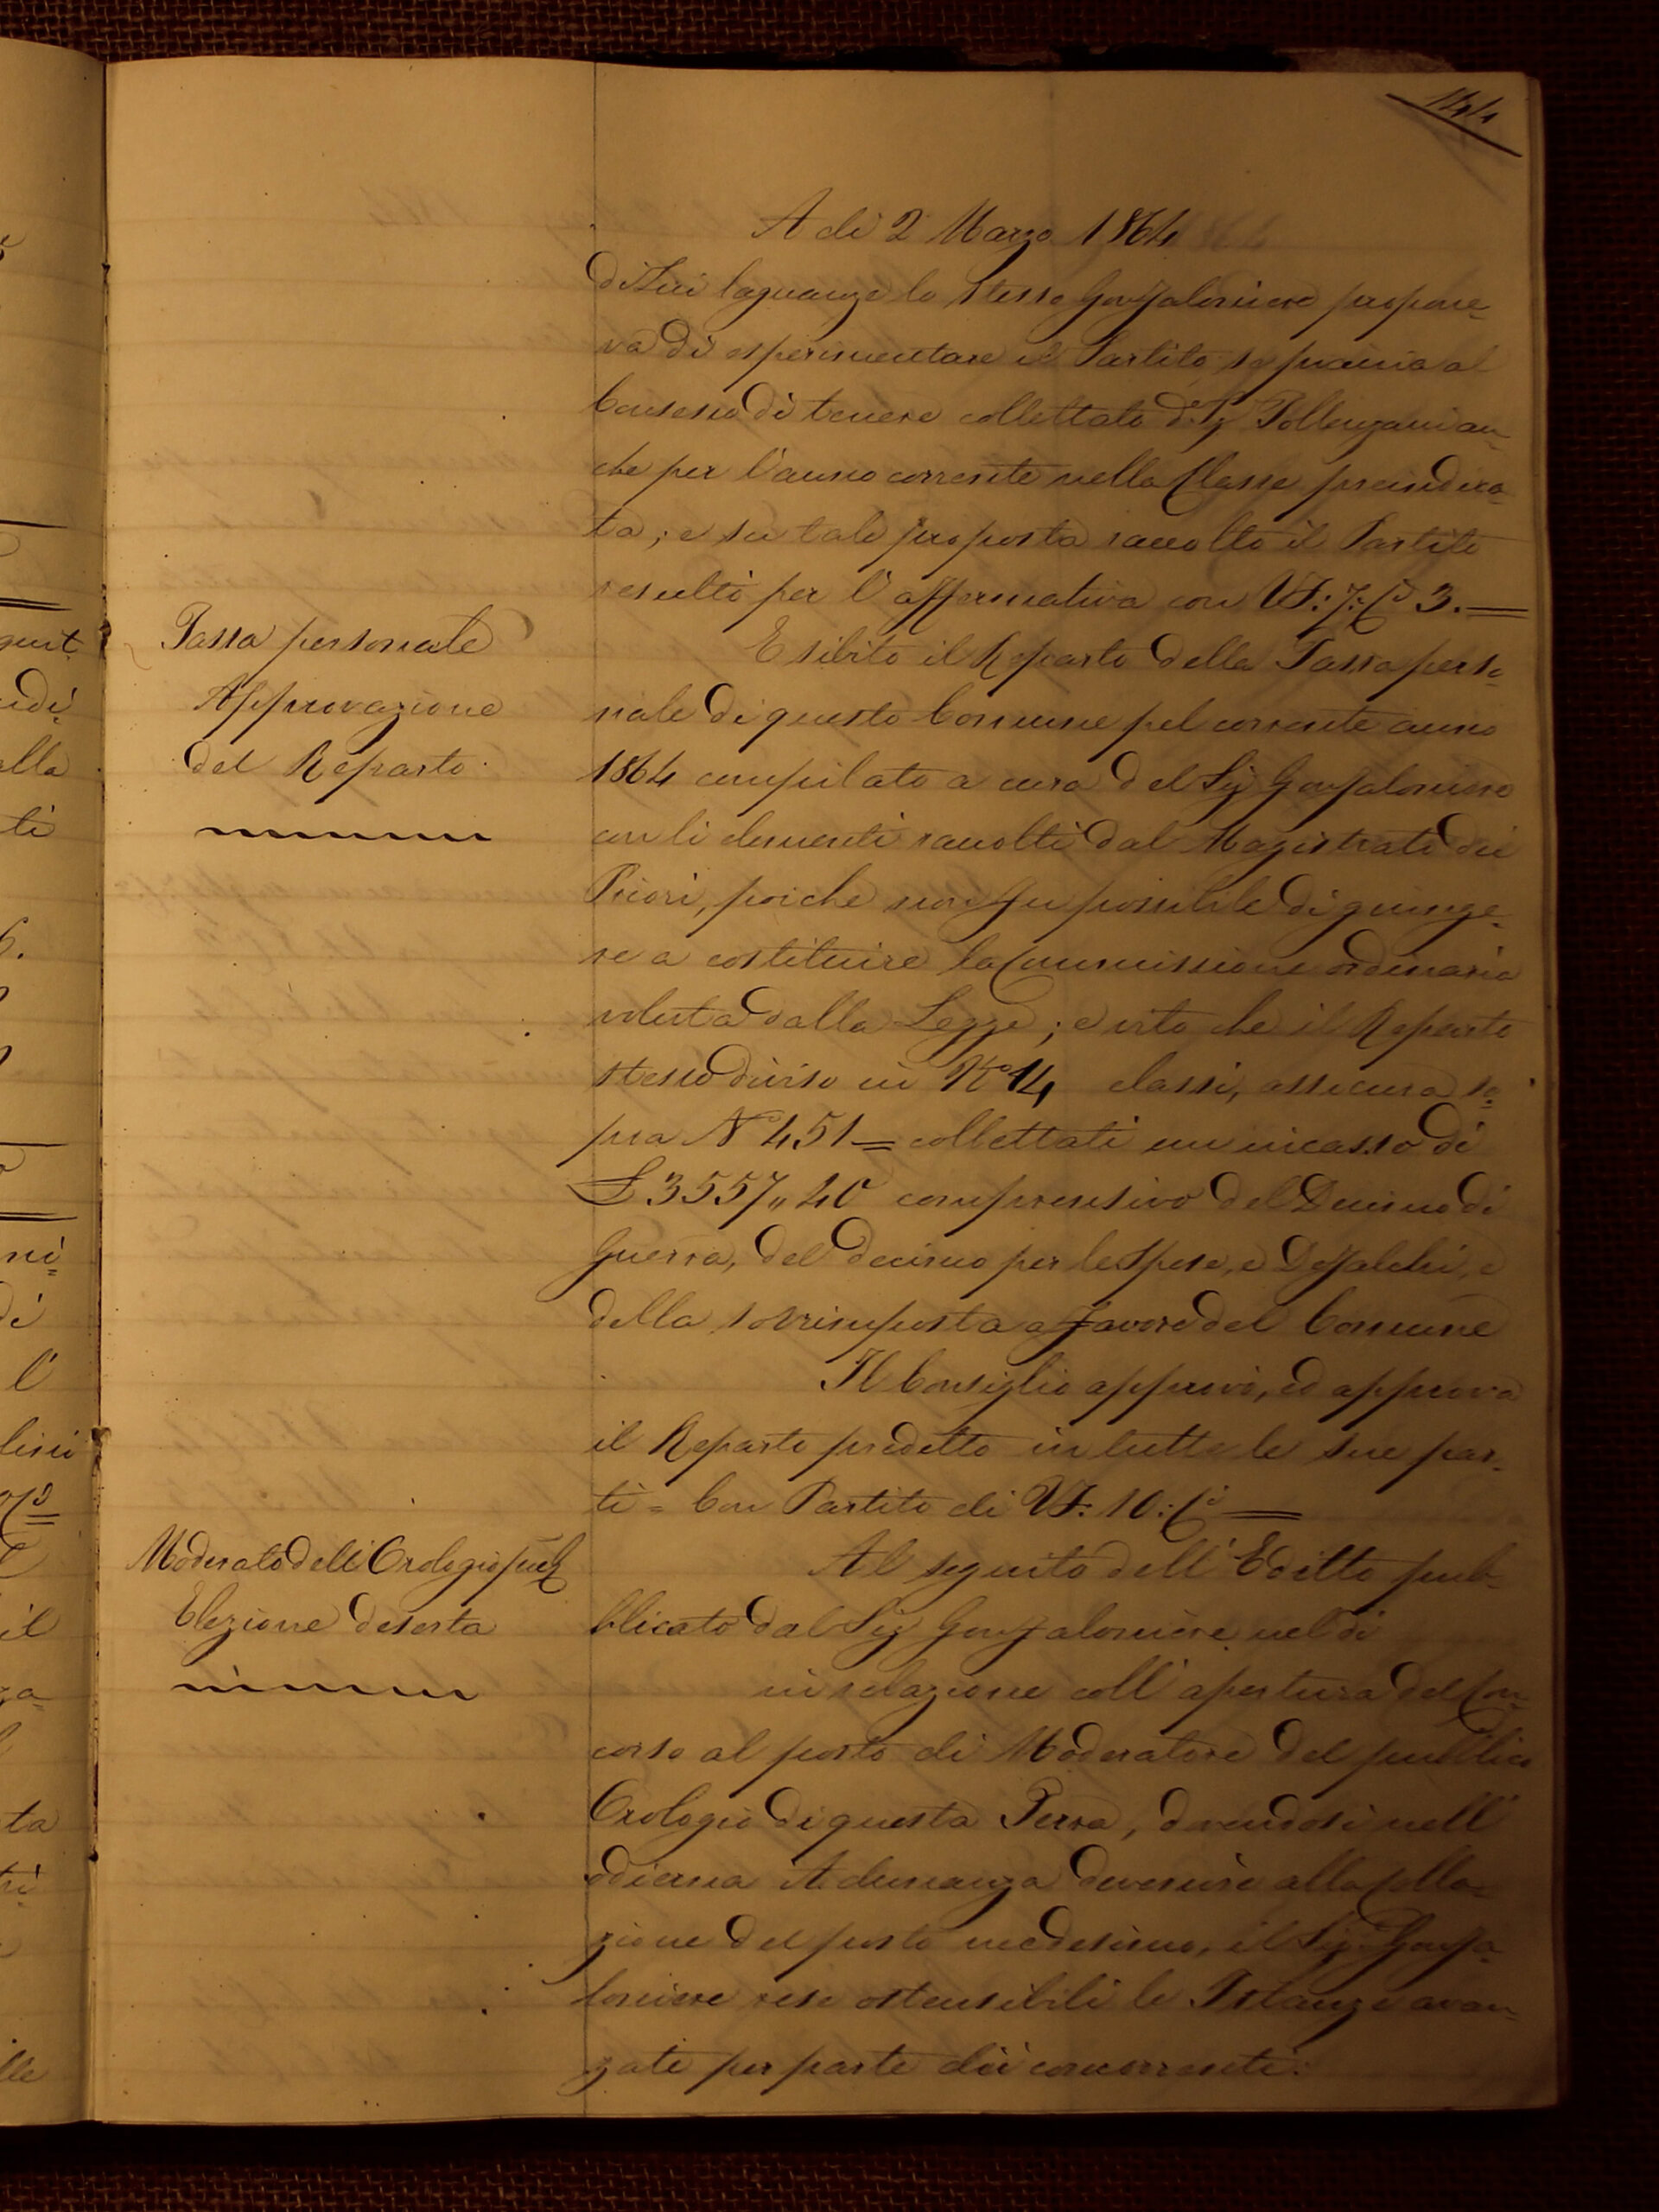 144
A dì 2 Marzo 1864
di Lui lagnanze lo stesso Gonfaloniere propone-
va di esperimentare il Partito se piaccia al
Consesso di tenere collettato d.° Sig Pollenzani an-
che per l'anno corrente nella Classe preindica-
ta; e su tale proposta raccolto il Partito
resultò per l'affermativa con VF: 7: C.i 3.—
Tassa personale
Approvazione
del Reparto
Esibito il Reparto della Tassa perso-
nale di questo Comune pel corrente anno
1864 compilato a cura del Sig Gonfaloniere
con li elementi raccolti dal Magistrato dei
Priori, poiche non fu possibile di giunge-
re a costituire la Commissione ordinaria
voluta dalla Legge; e visto che il Reparto
stesso diviso in N° 14 classi, assicura so-
pra N° 451= collettati un incasso di
£ 3557,, 40 comprensivo del Decimo di
Guerra, del decimo per le Spese, e Defalchi, e
della sovrimposta a favore del Comune
Il Consiglio approvò, ed approva
il Reparto predetto in tutte le sue par-
ti = Con Partito di VF: 10: C.i —
Moderato dell'Orologio pub
Elezione deserta
Al seguito dell'Editto pub-
blicato dal Sig Gonfaloniere nel di
in relazione coll'apertura del Con-
corso al posto di Moderatore del pubblico
Orologio di questa Terra, dovendosi nell'
odierna Adunanza devenire alla colla-
zione del posto medesimo, il Sig. Gonfa-
loniere rese ostensibili le Istanze avan-
zate per parte dei concorrenti: